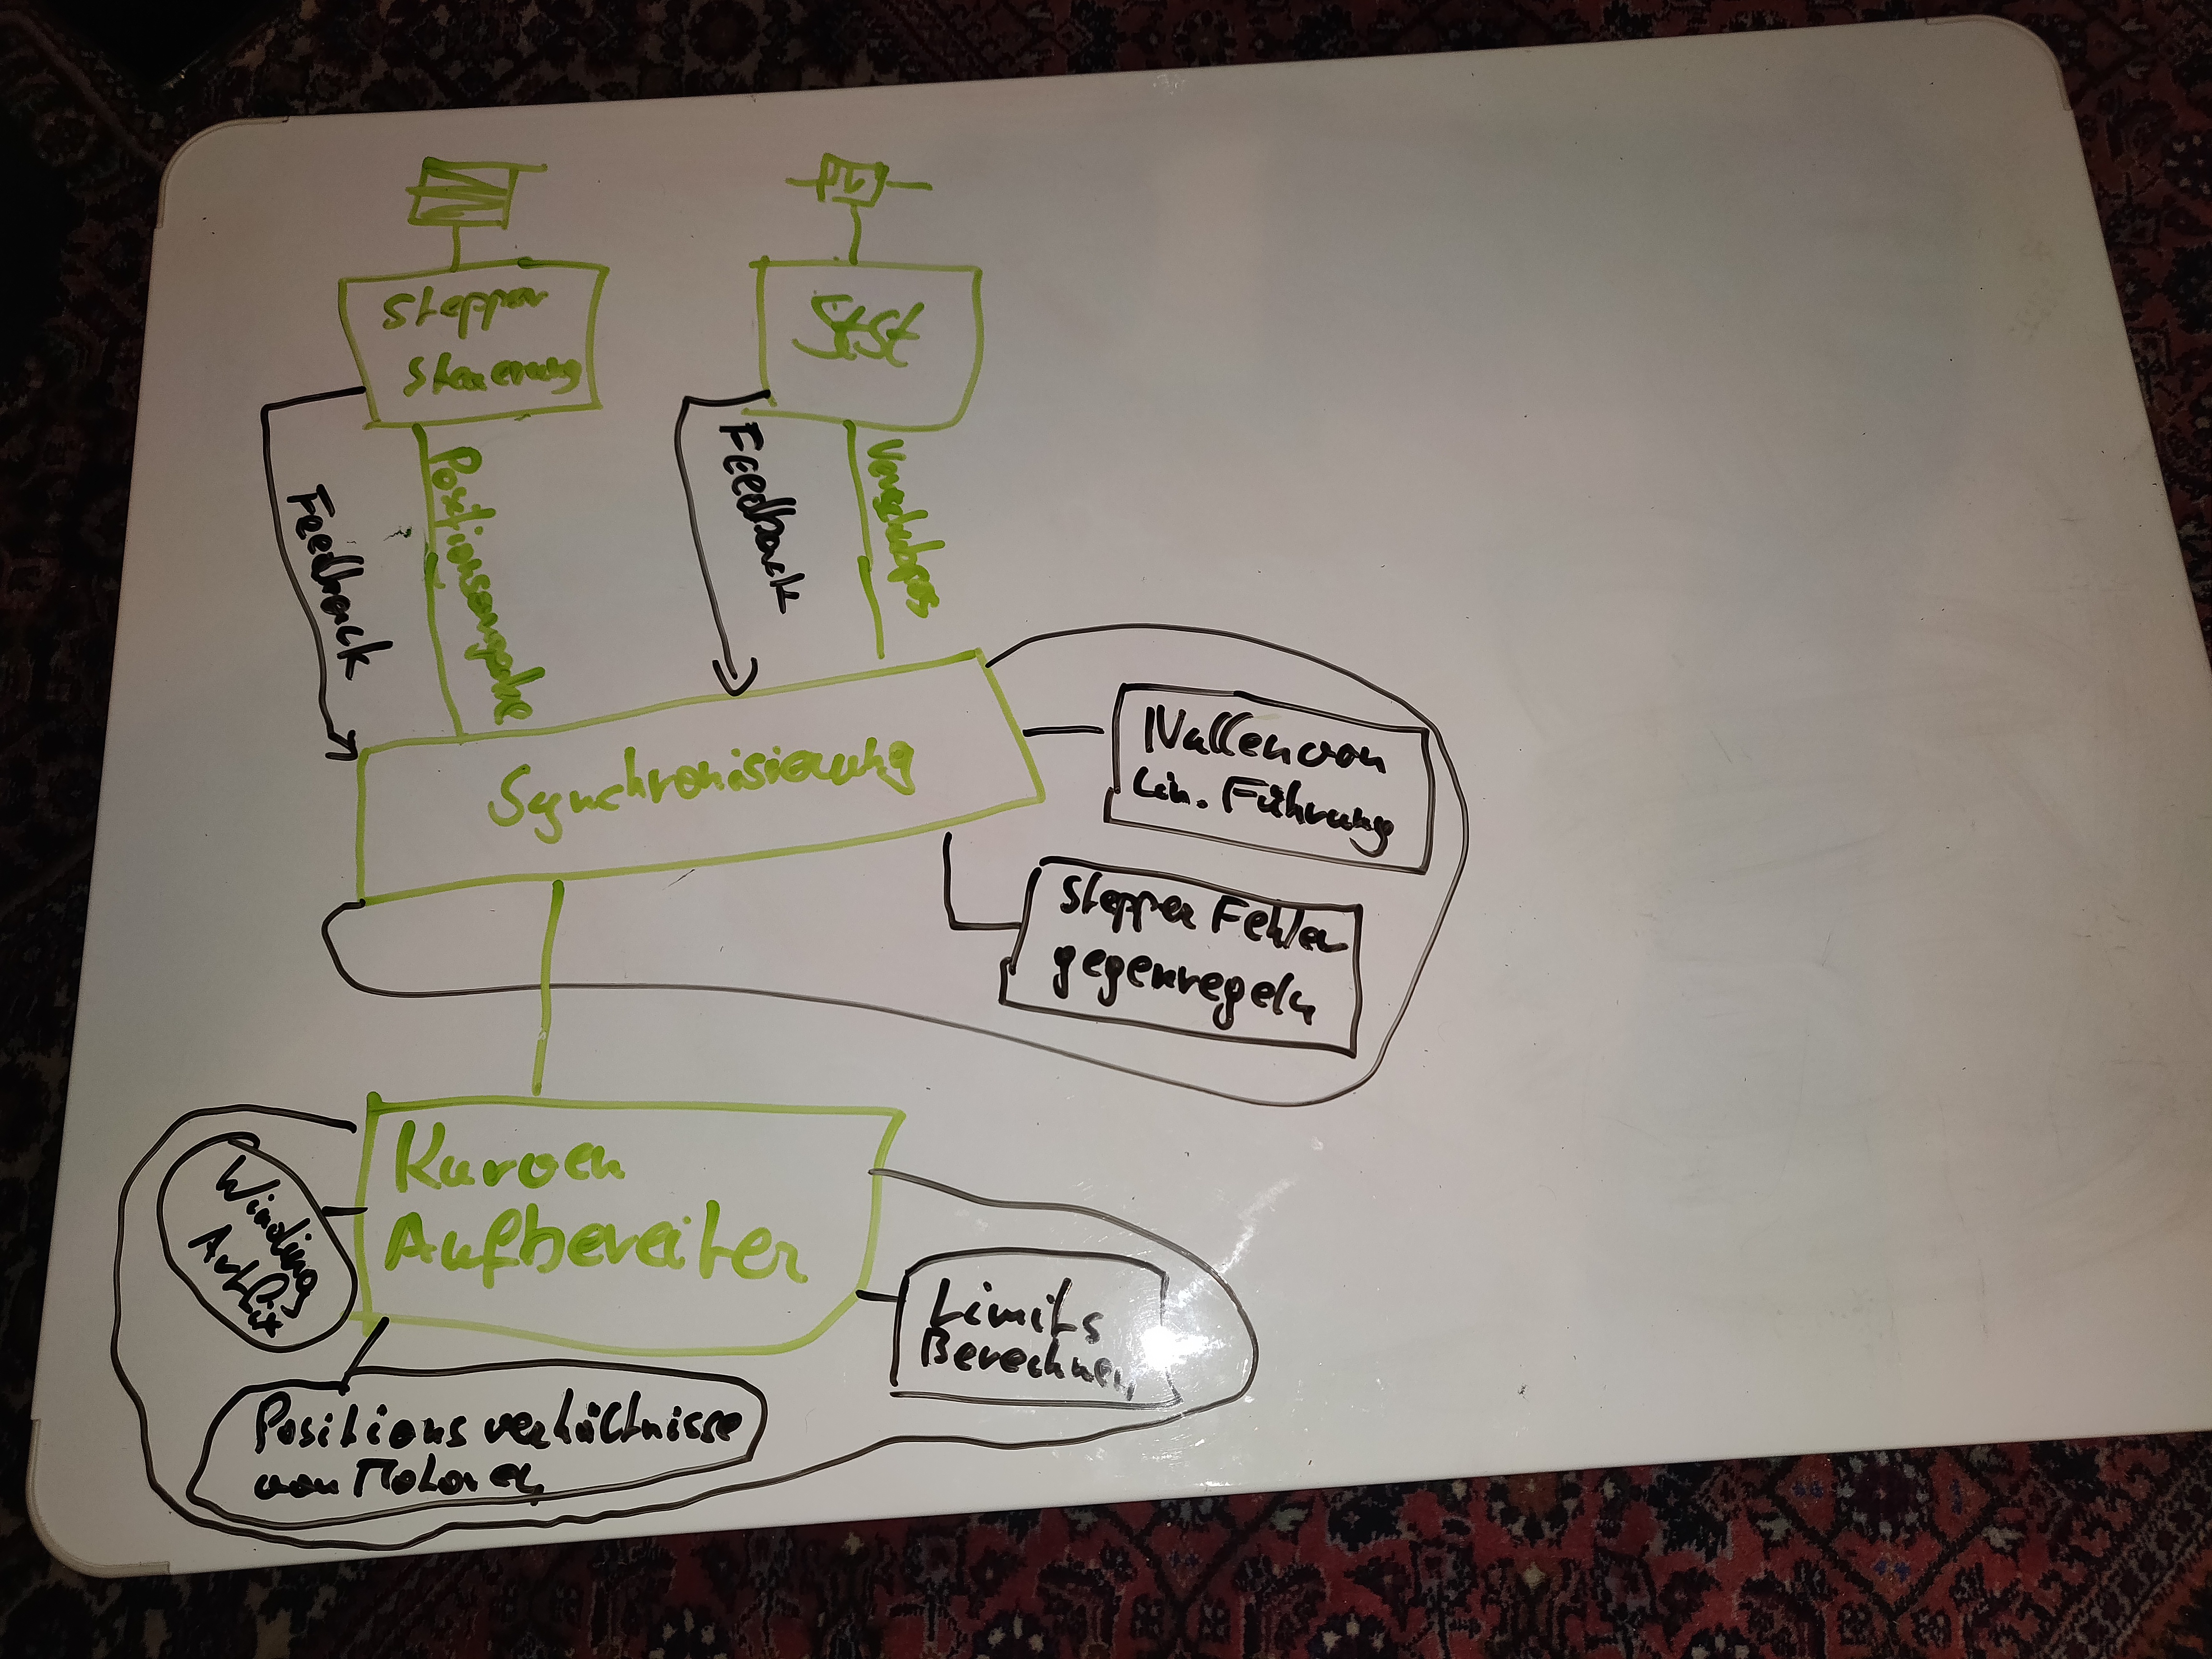 Stepper
steuerung
StSt
Feedback
Positionsvorgabe
Feedback
Vorschubpos
Synchronisierung
Nullen von
Lin. Führung
Stepper Fehler
gegenregeln
Kurven
Aufbereiter
Winding
Limits
Berechnen
Positions verhältnisse
von Motoren